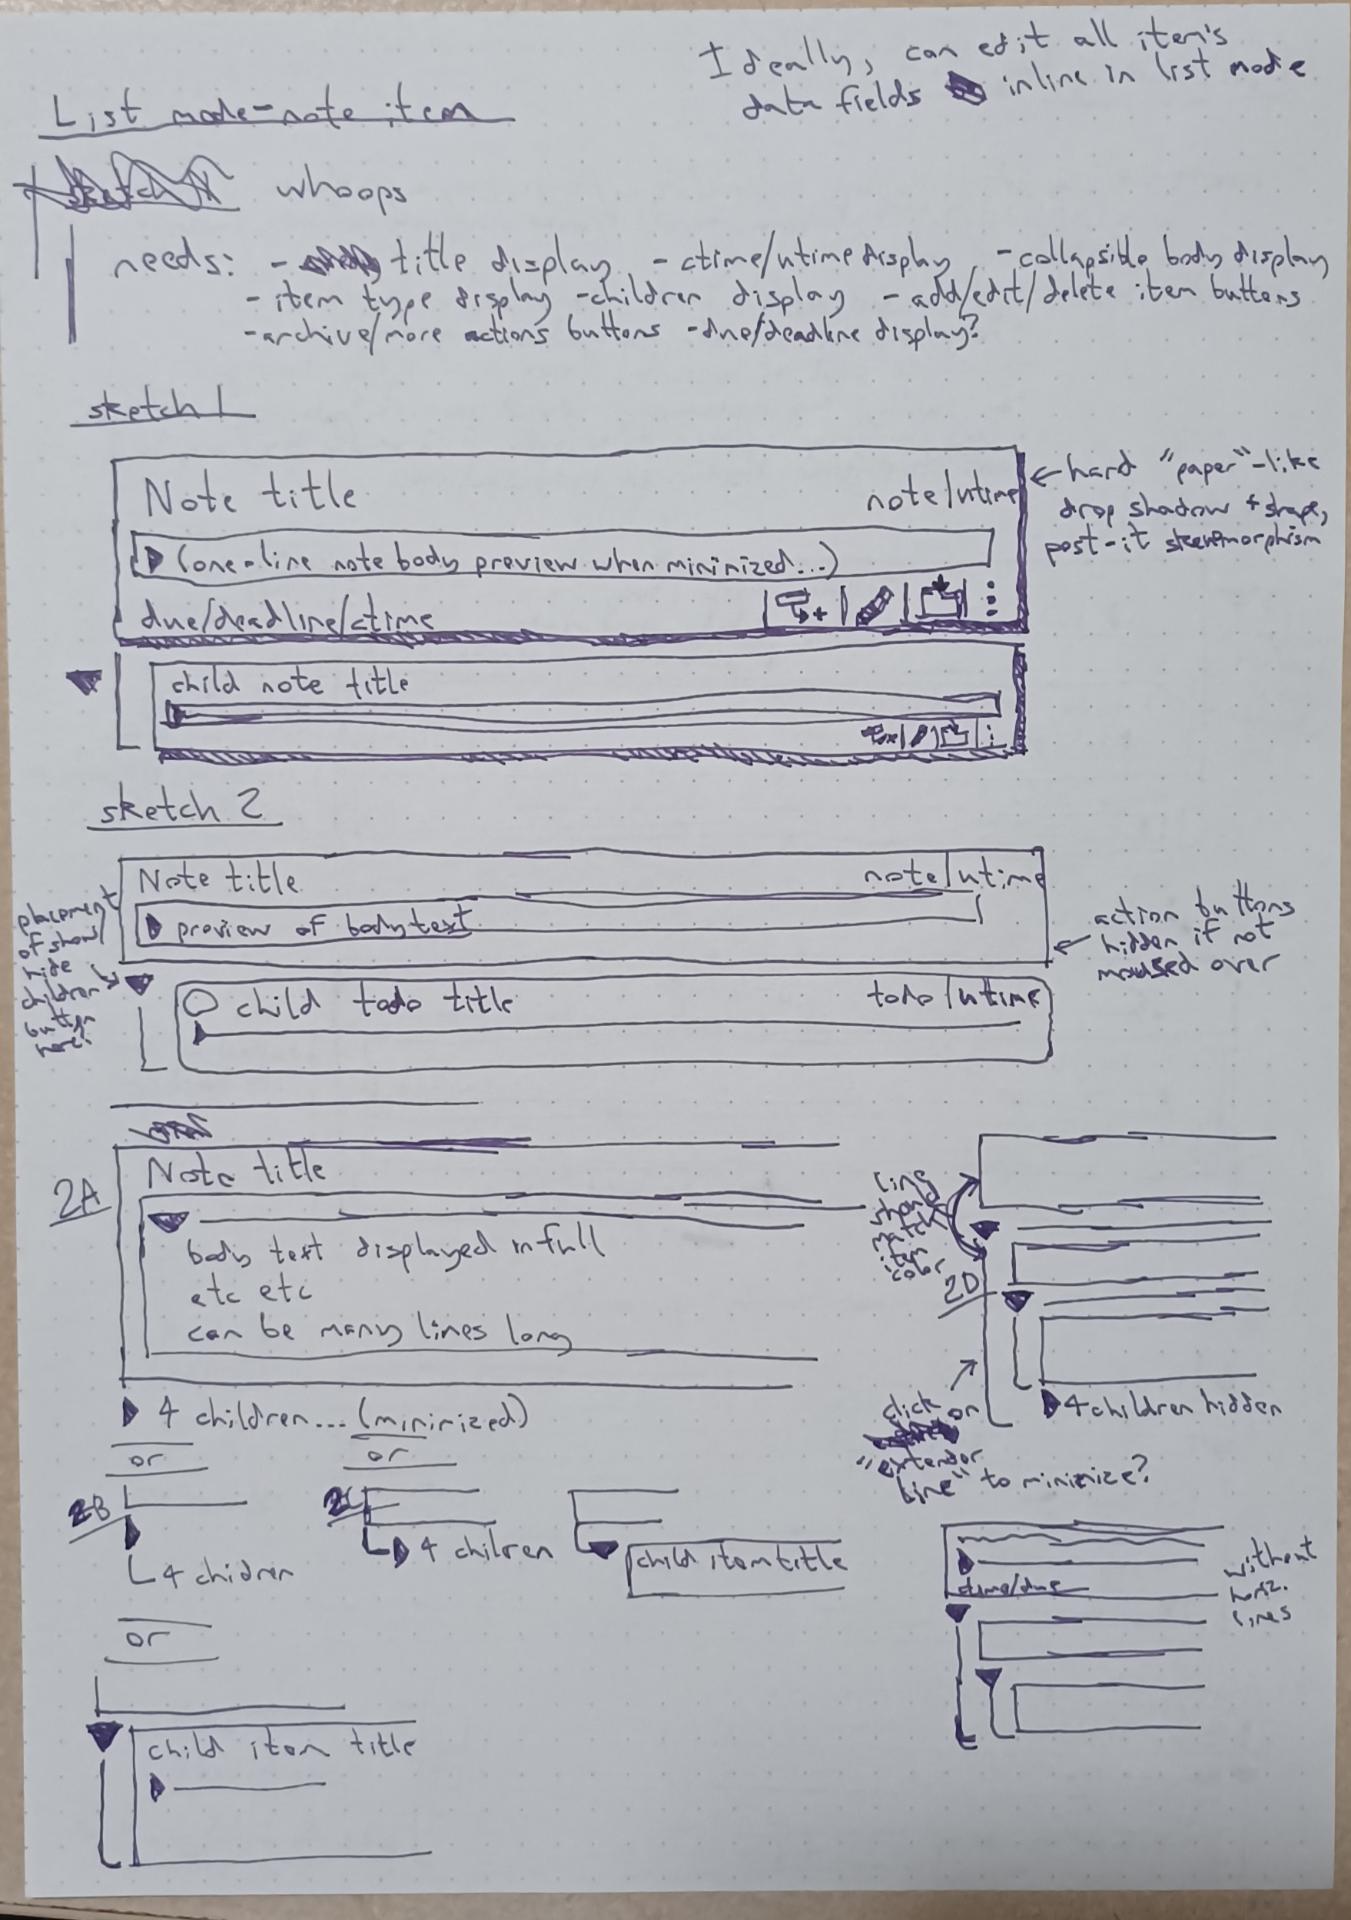 Ideally, can edit all item's
data fields inline in list mode
List mode-note item
whoops
needs: - title display - ctime/utime display - collapsible body display
- item type display - children display - add/edit/delete item buttons
- archive/more actions buttons - due/deadline display?
sketch 1
Note title
note/utime
▶ (one-line note body preview when minimized...)
due/deadline/ctime
← hard "paper"-like
drop shadow + shape,
post-it skeuomorphism
child note title
sketch 2
Note title
note/utime
▶ preview of body text
placement
of show/
hide
children
button
here?
action buttons
hidden if not
moused over
child todo title
todo/utime
2A
Note title
body text displayed in full
etc etc
can be many lines long
▶ 4 children... (minimized)
or
or
2B
4 children
2C
▶ 4 chilren
child item title
or
child item title
line
should
match
item
color
2D
▶ 4 children hidden
click on
"extendor
line" to minimize?
ctime/due
without
horiz.
lines